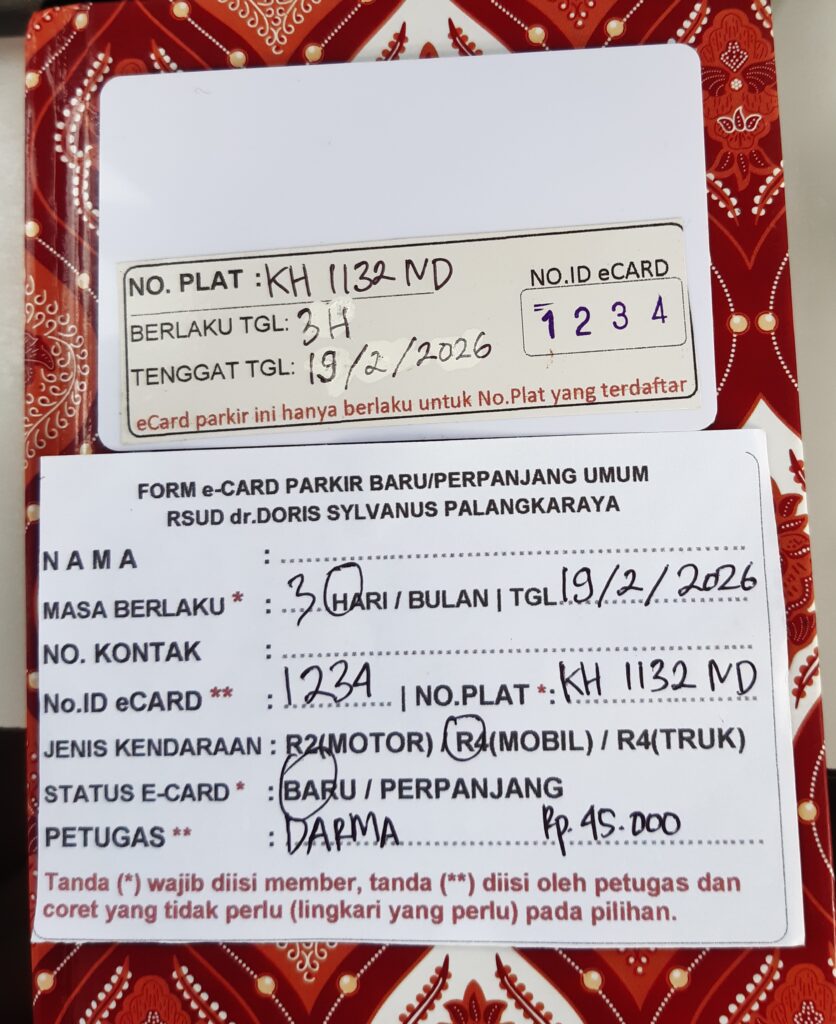 NO. PLAT : KH 1132 ND
NO.ID eCARD
1 2 3 4
BERLAKU TGL: 3H
TENGGAT TGL: 19/2/2026
eCard parkir ini hanya berlaku untuk No.Plat yang terdaftar
FORM e-CARD PARKIR BARU/PERPANJANG UMUM
RSUD dr.DORIS SYLVANUS PALANGKARAYA
N A M A :
MASA BERLAKU * : 3 HARI / BULAN | TGL 19/2/2026
NO. KONTAK :
No.ID eCARD ** : 1234 | NO.PLAT *: KH 1132 ND
JENIS KENDARAAN : R2(MOTOR) / R4(MOBIL) / R4(TRUK)
STATUS E-CARD * : BARU / PERPANJANG
PETUGAS ** : DARMA Rp. 45.000
Tanda (*) wajib diisi member, tanda (**) diisi oleh petugas dan
coret yang tidak perlu (lingkari yang perlu) pada pilihan.